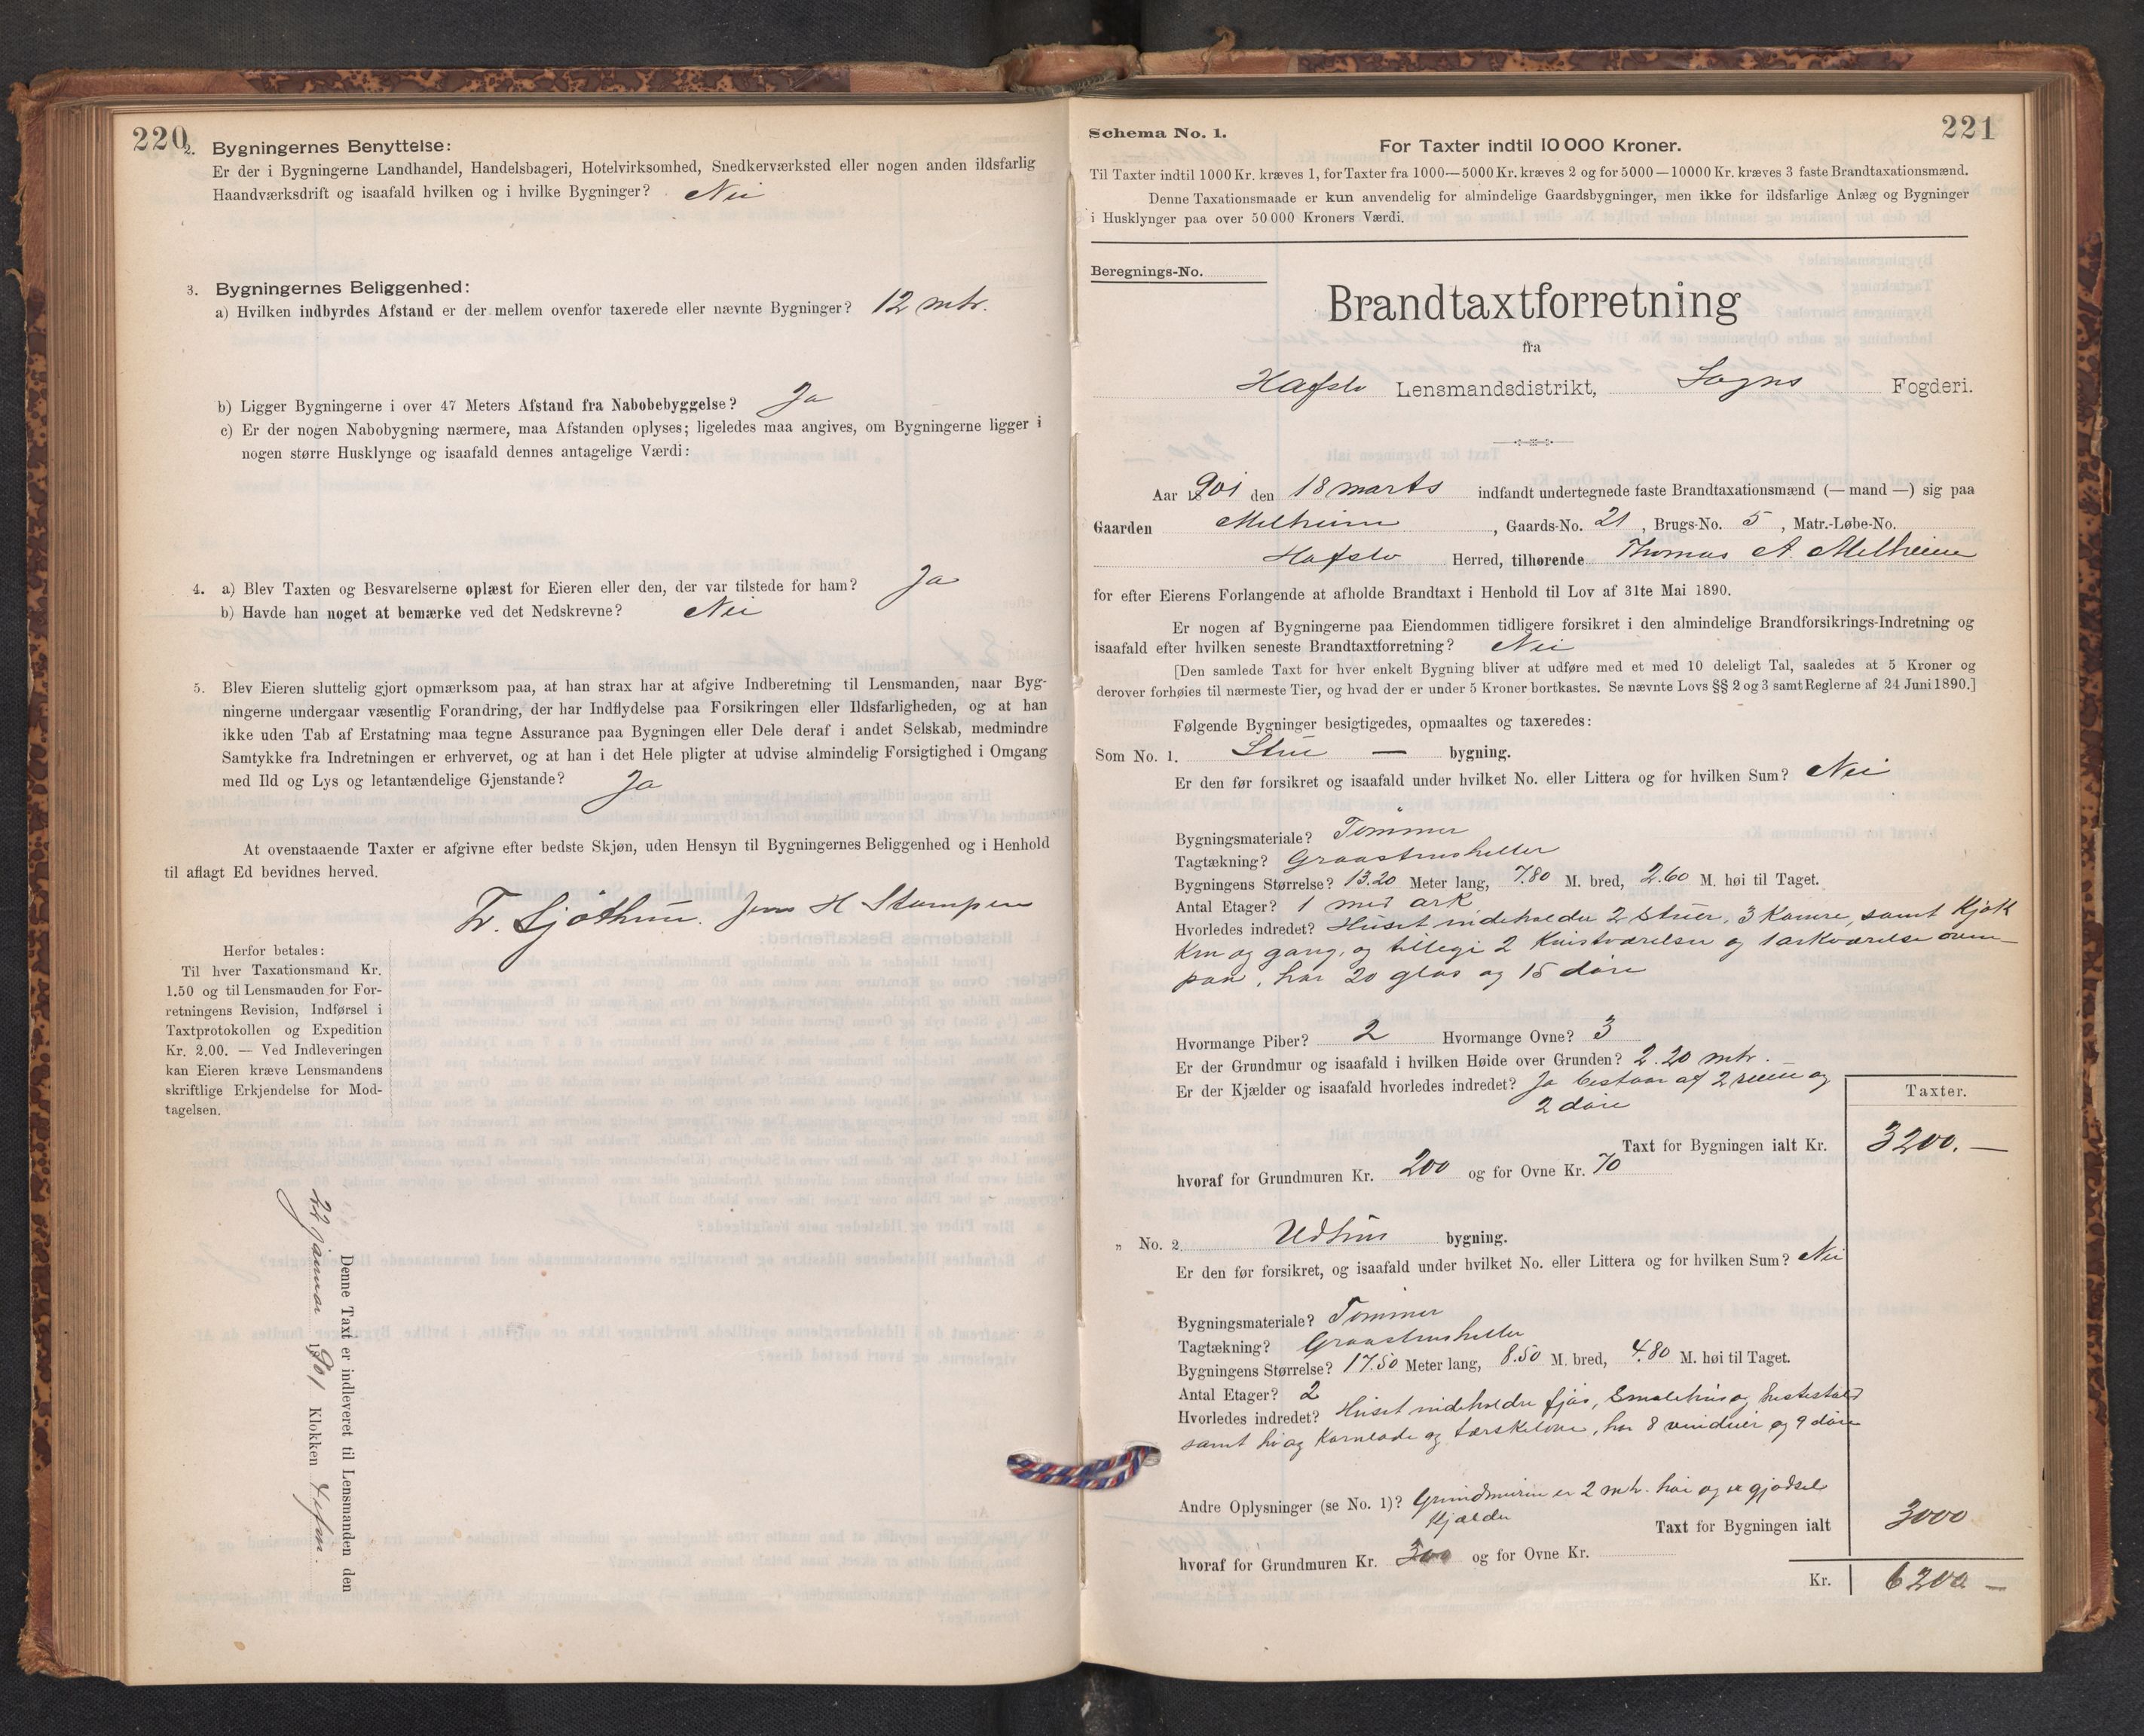 220
2. Bygningernes Benyttelse:
Er der i Bygningerne Landhandel, Handelsbageri, Hotelvirksomhed, Snedkerværksted eller nogen anden ildsfarlig
Haandværksdrift og isaafald hvilken og i hvilke Bygninger? Nei
3. Bygningernes Beliggenhed:
a) Hvilken indbyrdes Afstand er der mellem ovenfor taxerede eller nævnte Bygninger? 12 mtr.
b) Ligger Bygningerne i over 47 Meters Afstand fra Nabobebyggelse? Ja
c) Er der nogen Nabobygning nærmere, maa Afstanden oplyses; ligeledes maa angives, om Bygningerne ligger i
nogen større Husklynge og isaafald dennes antagelige Værdi:
4. a) Blev Taxten og Besvarelserne oplæst for Eieren eller den, der var tilstede for ham? Ja
b) Havde han noget at bemærke ved det Nedskrevne? Nei
5. Blev Eieren sluttelig gjort opmærksom paa, at han strax har at afgive Indberetning til Lensmanden, naar Byg-
ningerne undergaar væsentlig Forandring, der har Indflydelse paa Forsikringen eller Ildsfarligheden, og at han
ikke uden Tab af Erstatning maa tegne Assurance paa Bygningen eller Dele deraf i andet Selskab, medmindre
Samtykke fra Indretningen er erhvervet, og at han i det Hele pligter at udvise almindelig Forsigtighed i Omgang
med Ild og Lys og letantændelige Gjenstande? Ja
At ovenstaaende Taxter er afgivne efter bedste Skjøn, uden Hensyn til Bygningernes Beliggenhed og i Henhold
til aflagt Ed bevidnes herved.
Jens H
Herfor betales:
Til hver Taxationsmand Kr.
1.50 og til Lensmanden for For-
retningens Revision, Indførsel i
Taxtprotokollen og Expedition
Kr. 2.00. — Ved Indleveringen
kan Eieren kræve Lensmandens
skriftlige Erkjendelse for Mod-
tagelsen.
Denne Taxt er indleveret til Lensmanden den
22 januar 1901 Klokken
Schema No. 1.
221
For Taxter indtil 10 000 Kroner.
Til Taxter indtil 1000 Kr. kræves 1, for Taxter fra 1000—5000 Kr. kræves 2 og for 5000—10000 Kr. kræves 3 faste Brandtaxationsmænd.
Denne Taxationsmaade er kun anvendelig for almindelige Gaardsbygninger, men ikke for ildsfarlige Anlæg og Bygninger
i Husklynger paa over 50 000 Kroners Værdi.
Beregnings-No.
Brandtaxtforretning
fra
Hafslo Lensmandsdistrikt, Sogns Fogderi.
Aar 1901 den 18 marts indfandt undertegnede faste Brandtaxationsmænd (— mand —) sig paa
Gaarden Melheim, Gaards-No. 21, Brugs-No. 5, Matr.-Løbe-No.
Hafslo Herred, tilhørende Thomas A. Melheim
for efter Eierens Forlangende at afholde Brandtaxt i Henhold til Lov af 31te Mai 1890.
Er nogen af Bygningerne paa Eiendommen tidligere forsikret i den almindelige Brandforsikrings-Indretning og
isaafald efter hvilken seneste Brandtaxtforretning? Nei
[Den samlede Taxt for hver enkelt Bygning bliver at udføre med et med 10 deleligt Tal, saaledes at 5 Kroner og
derover forhøies til nærmeste Tier, og hvad der er under 5 Kroner bortkastes. Se nævnte Lovs §§ 2 og 3 samt Reglerne af 24 Juni 1890.]
Følgende Bygninger besigtigedes, opmaaltes og taxeredes:
Som No. 1. Stue — bygning.
Er den før forsikret og isaafald under hvilket No. eller Littera og for hvilken Sum? Nei
Bygningsmateriale? Tømmer
Tagtækning? Graastensheller
Bygningens Størrelse? 13.20 Meter lang, 7.80 M. bred, 2.60 M. høi til Taget.
Antal Etager? 1 med ark
Hvorledes indret? Huset indeholder 2 Stuer, 3 Kamre, samt Kjøk
ken og gang, og tillegi 2 Knistværelser og 1 arkværelse oven-
paa, har 20 glas og 15 døre
Hvormange Piber? 2 Hvormange Ovne? 3
Er der Grundmur og isaafald i hvilken Høide over Grunden? 2.20 mtr. —
Er der Kjælder og isaafald hvorledes indredet? Ja bestaar af 2 rum og
2 døre
Taxter.
Taxt for Bygningen ialt Kr. 3200. —
hvoraf for Grundmuren Kr. 200 og for Ovne Kr. 70
„ No. 2. Udhus bygning.
Er den før forsikret, og isaafald under hvilket No. eller Littera og for hvilken Sum? Nei
Bygningsmateriale? Tømmer
Tagtækning? Graastensheller
Bygningens Størrelse? 17.50 Meter lang, 8.50 M. bred, 4.80 M. høi til Taget.
Antal Etager? 2
Hvorledes indredet? Huset indeholder fjøs, Smalehus og hestestald
samt hø og Kornlade og tærskelove, har 8 vinduer og 9 døre
Andre Oplysninger (se No. 1)? Grundmuren er 2 mtr. høi og er gjødsel
Kjælder
Taxt for Bygningen ialt 3000
hvoraf for Grundmuren Kr. 300 og for Ovne Kr.
Kr. 6200 —